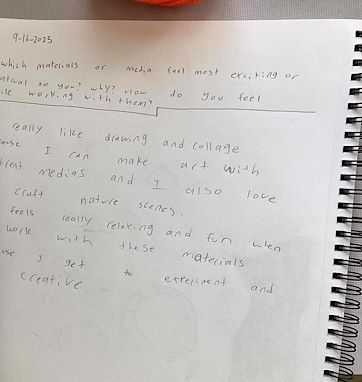 9-16-2025
which materials or media feel most exciting or
to you? why? How do you feel
working with them?
really like drawing and collage
I can make art with
medias and I also love
craft nature scenes.
feels really relaxing and fun when
work with these materials
I get to experiment and
creative.